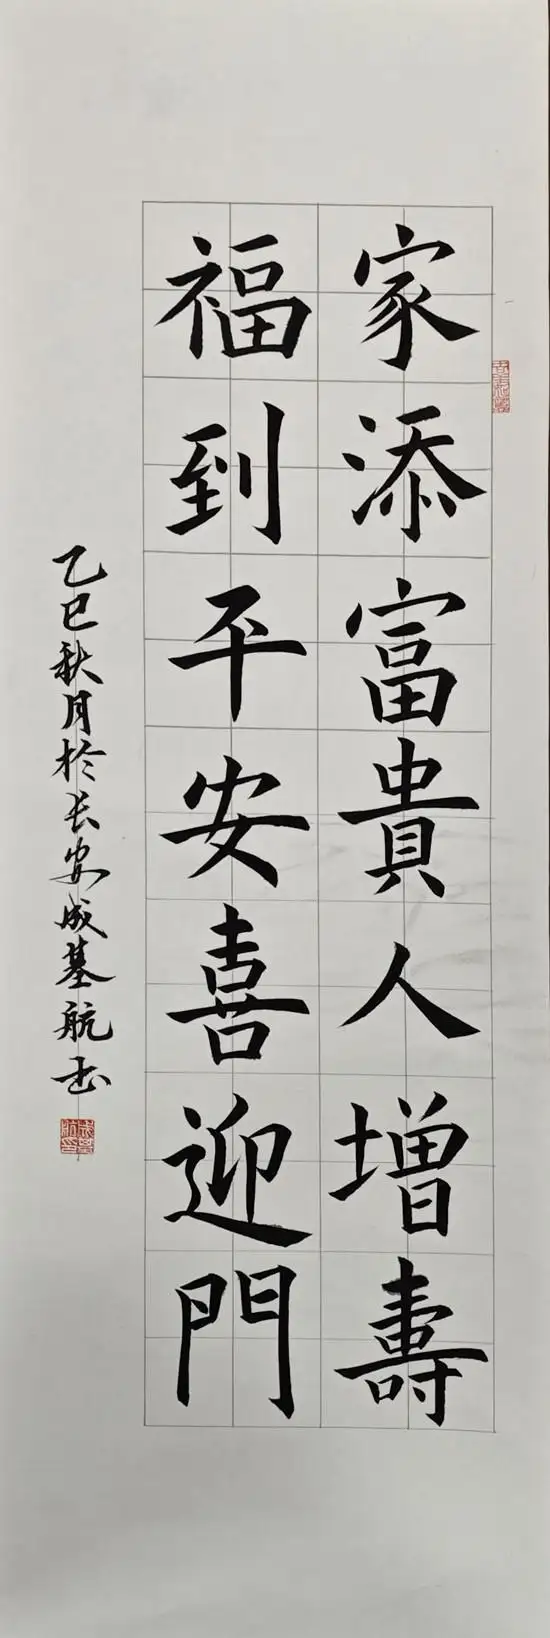 家添富貴人增壽
福到平安喜迎門
乙巳秋月於长安成基航书